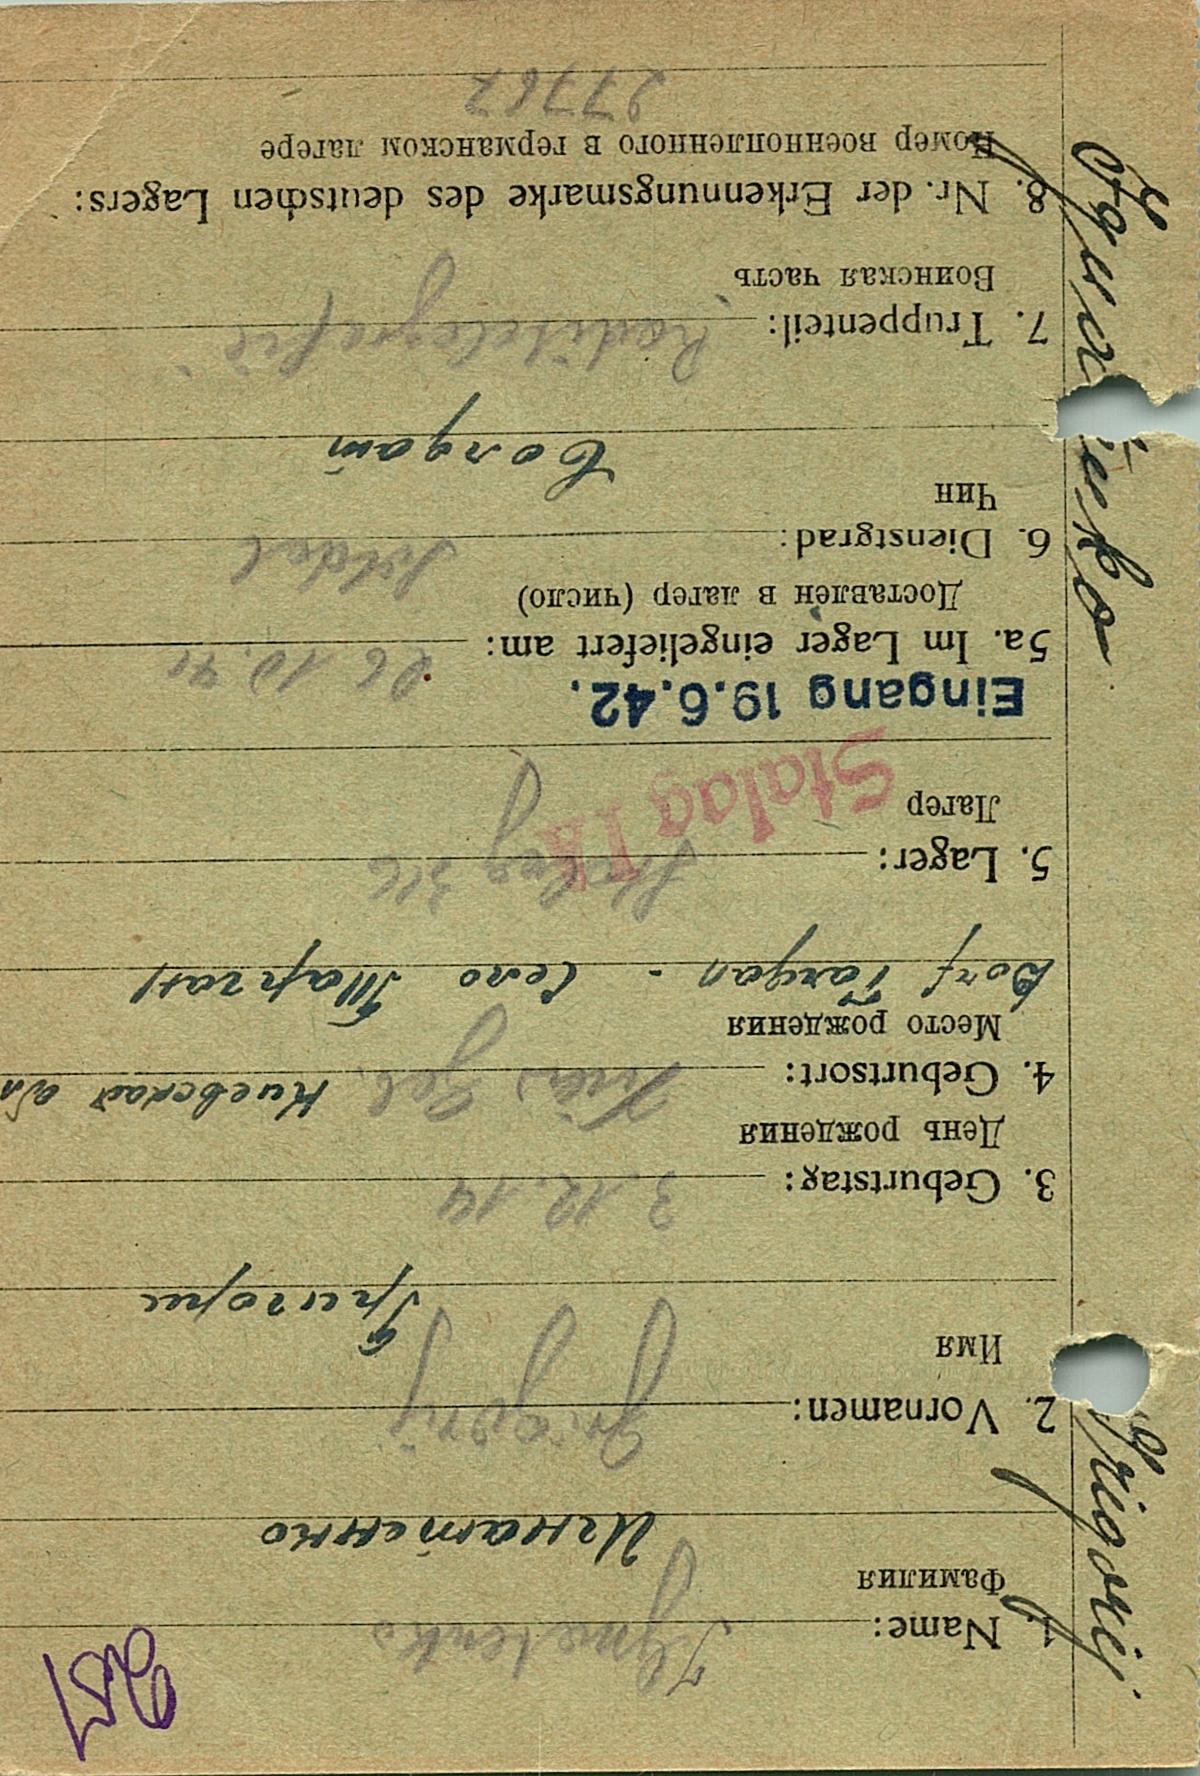 251
1. Name: Ignatenko
Фамилия
Игнатенко
2. Vornamen: Grigorij
Имя
Григорие
3. Geburtstag: 3.12.14
День рождения
4. Geburtsort: Kiew Киевская обл
Место рождения
Dorf Targan - Село Тарган
5. Lager: Stalag 316
Лагер
Stalag I A
Eingang 19.6.42.
5a. Im Lager eingeliefert am: 26 10.41
Доставлен в лагер (число)
6. Dienstgrad: Soldat
Чин
Солдат
7. Truppenteil:
Воинская часть
8. Nr. der Erkennungsmarke des deutschen Lagers:
Номер военнопленного в германском лагере
27767
Ignatenko Grigorij